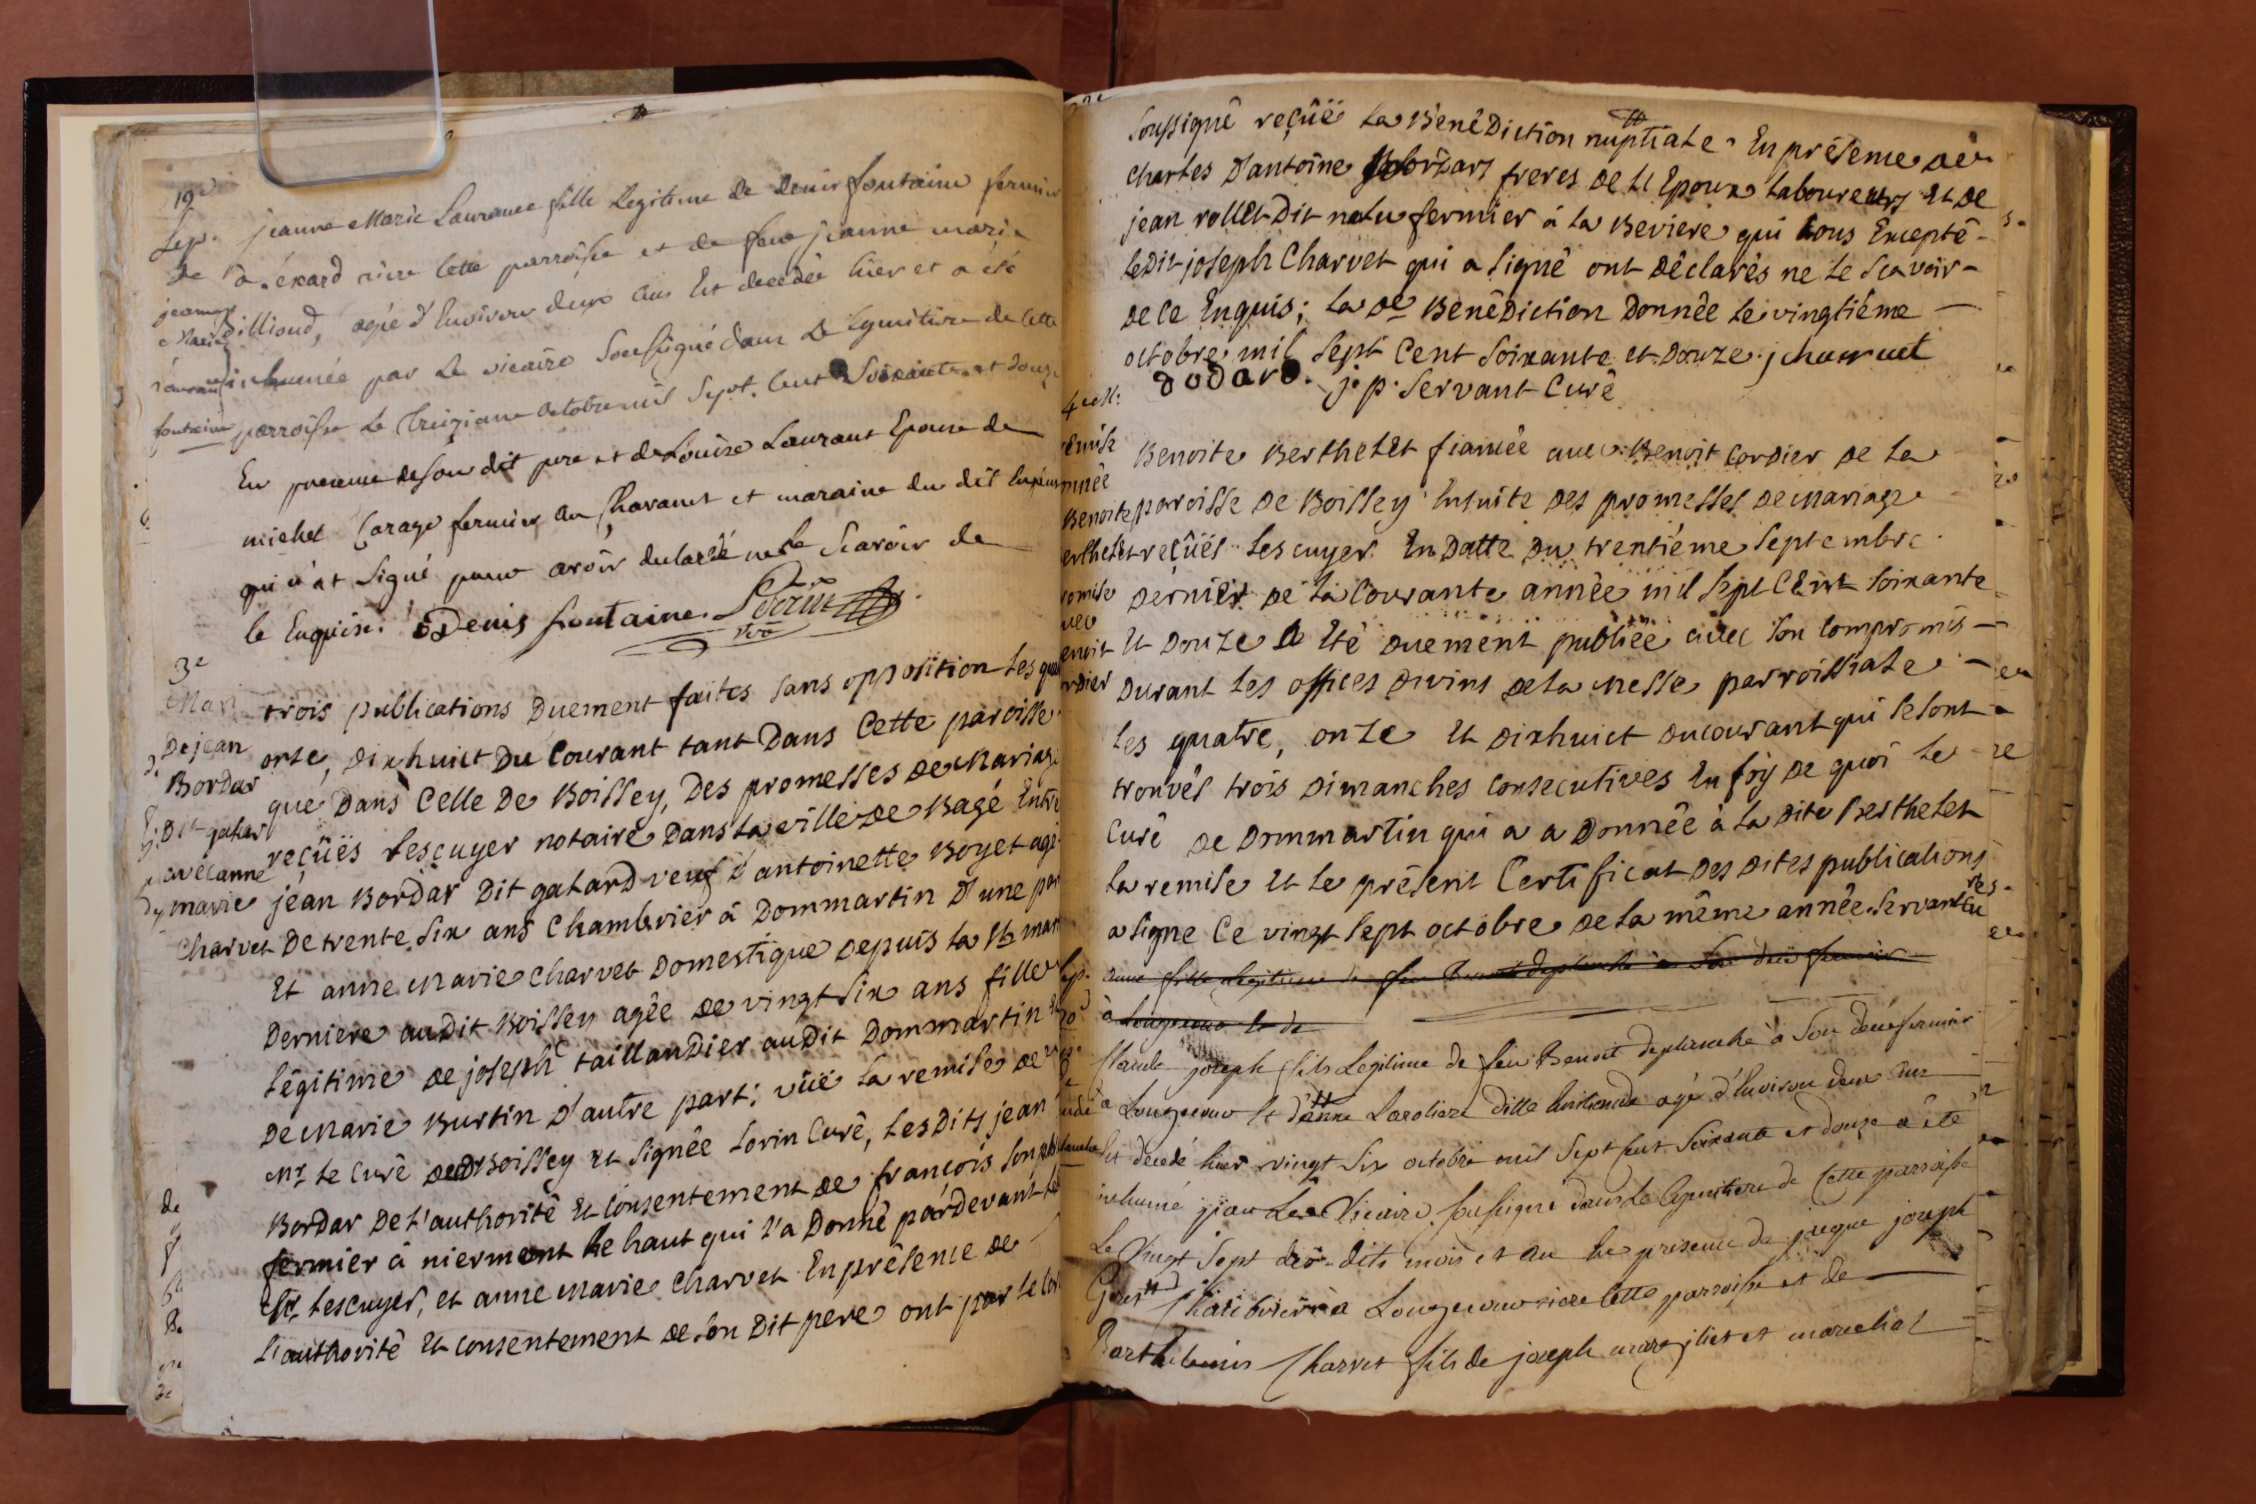 19e
Sep.
de
jeanne
Marie
Laurance
fontaine
jeanne Marie Laurance fille Legitime de denis fontaine fermier
à l'épard rière Cette parroisse et de feue jeanne marie
dillioud, agée d'Environ deux ans Est decedée hier et a été
inhumée par Le vicaire Soussigné dans Le Cymitière de Cette
parroisse Le treizieme octobre mil Sept Cent Soixante et douze
En presence de son dit pere et de Louise Laurant Epouse de
michel Carage fermier au Chavanet et maraine du dit
qui n'at signé pour avoir declaré ne le Scavoir de
ce Enquise. Denis fontaine. vre
3e
Mari
De jean
Bordar
Dit gahar
avec anne
marie
Charvet
trois publications Duement faites sans opposition Les qua
onze, Dixhuict Du Courant tant Dans Cette paroisse
que Dans Celle De Boissey, Des promesses De Mariage
reçûës Lescuyer notaire Dans La ville De Bagé Entre
jean Bordar Dit gahard veuf d'antoinette Boyet agé
De trente Six ans Chambrier à Dommartin D'une par
Et anne Marie Charvet Domestique Depuis La St mar
Derniere audit Boissey agée De vingt Six ans fille
Légitime De joseph taillandier audit Dommartin et
De Marie Burtin D'autre part; vûë La remise De
Mr Le Curé De Boissey Et Signée Lorin Curé, Les Dits jean
Bordar De L'authorité Et Consentement De françois Son
fermier à niermont Le haut qui L'a Donné pardevant Le
Sr Lescuyer, et anne Marie Charvet En présence De
L'authorité Et Consentement De Son Dit pere ont par Le
Soussigné reçûë La Bénédiction nuptiale. En présence De
Charles D'antoine Bordars freres De L'Epoux Laboureurs Et De
jean rollet Dit fermier à La Beviere qui tous Excepté
Le Dit joseph Charvet qui a Signé ont Déclarés ne Le Scavoir
De Ce Enquis; La De Bénédiction Donnée Le vingtiéme
octobre mil Sept Cent Soixante et Douze. j Charvet
Dodard. j. p. Servant Curé
4e
remise
Benoite
Berthelet
promise
avec
Benoit
Cordier
Benoite Berthelet fiancée avec Benoit Cordier De La
paroisse De Boissey Ensuite Des promesses De Mariage
reçûës Lescuyer En Datte Du trentiéme Septembre
Dernier De La Courante année mil Sept Cent Soixante
Et Douze a Eté Duement publiée avec Son Compromis
Durant Les offices Divins De La Messe parroissiale
Les quatre, onze Et Dixhuict Du Courant qui Se Sont
trouvés trois Dimanches Consecutives En foy De quoi Le
Curé De Dommartin qui a a Donnée à La Dite Berthelet
La remise Et Le présent Certificat Des Dites publications
a Signe Ce vingt Sept octobre De La même année. Servant Cu
anne fille Legitime de feu Benoit deplanche à Son fermier
à Longecour Et de
Claude joseph fils Legitime de feu Benoit deplanche à Son fermier
à Longecour Et d'anne dille agé d'Environ deux ans
Est decedé hier vingt Six octobre mil Sept Cent Soixante et douze a été
inhumé par Le Vicaire Soussigné dans Le Cymitiere de Cette parroisse
Le vingt Sept des dits mois et an En presence de joseph
à Longecour riere Cette parroisse et de
Barthelemis Charvet fils de joseph et marechal